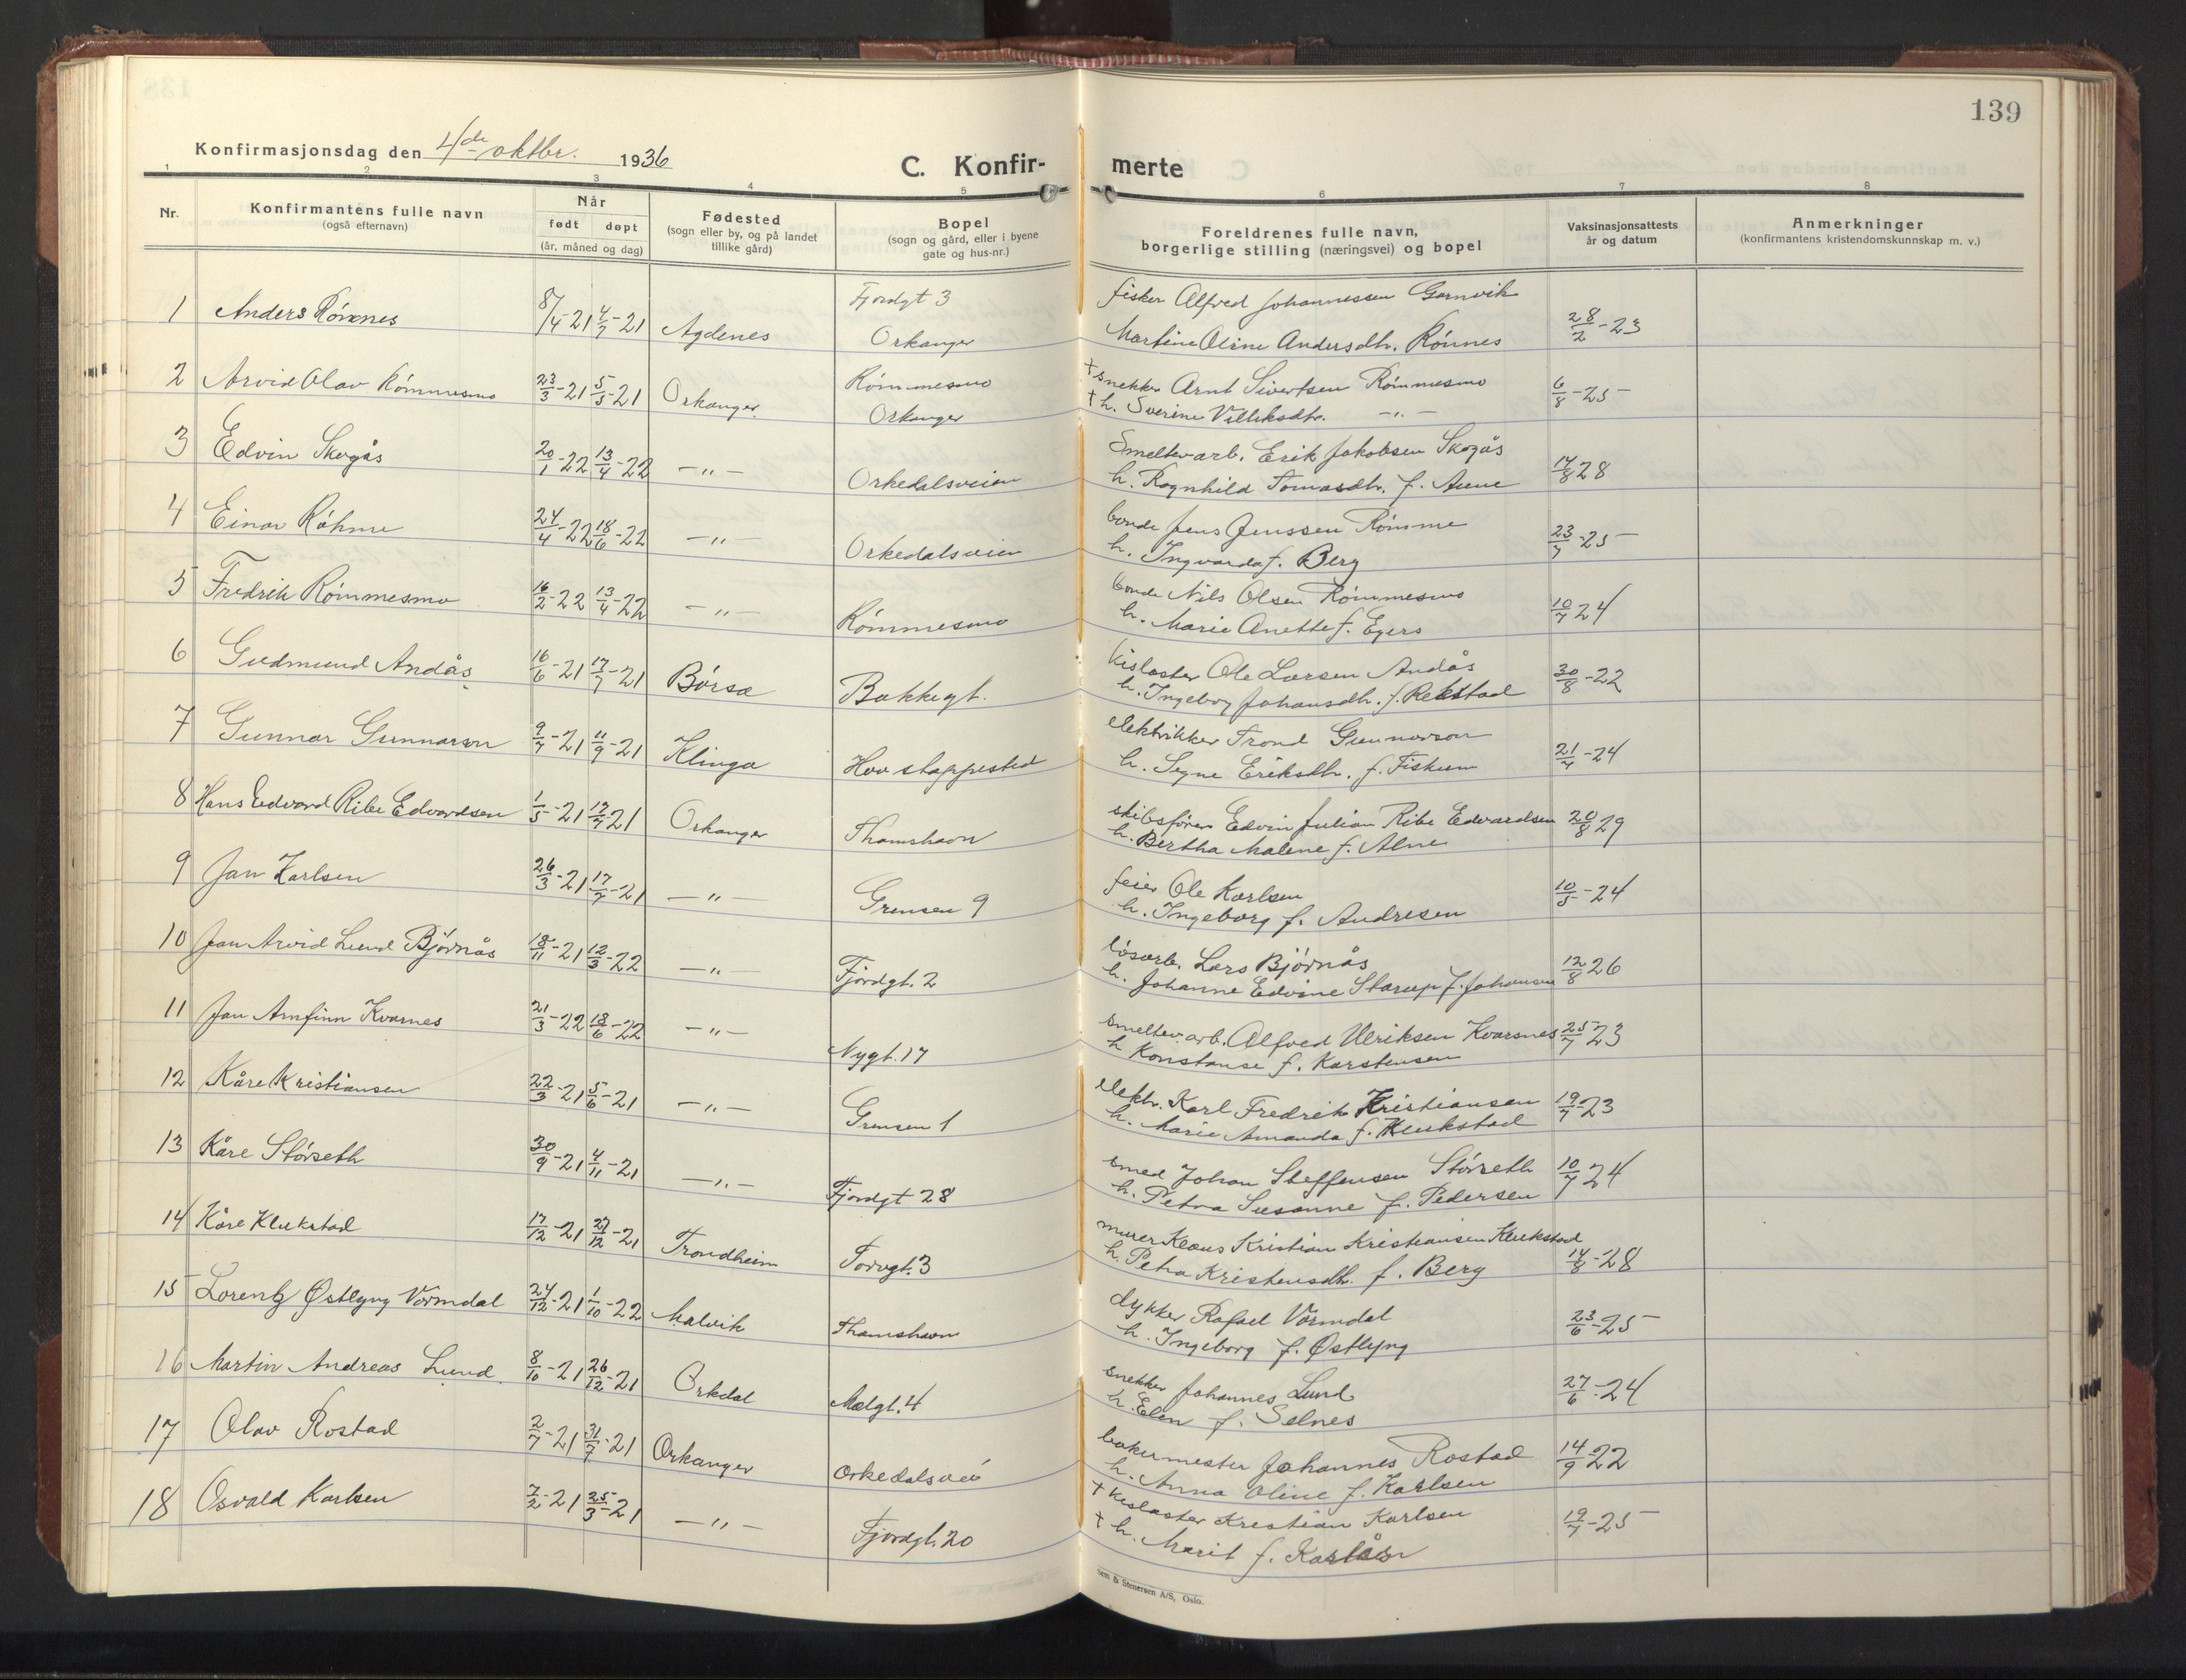 139
Konfirmasjonsdag den 4de oktbr. 1936
C. Konfir-
merte
1 2 3 4 5 6 7 8
Nr.
Konfirmantens fulle navn
(også efternavn)
Når
født døpt
(år, måned og dag)
Fødested
(sogn eller by, og på landet
tillike gård)
Bopel
(sogn og gård, eller i byene
gate og hus-nr.)
Foreldrenes fulle navn,
borgerlige stilling (næringsvei) og bopel
Vaksinasjonsattests
år og datum
Anmerkninger
(konfirmantens kristendomskunnskap m. v.)
1 Anders Rönnes 8/4-21 4/7-21 Agdenes Fjordgt 3
Orkanger
fisker Alfred Johannessen Garnvik
Martine Oline Andersdtr. Rönnes 28/2-23
2 Arvid Olav Römmesmo 23/3-21 5/5-21 Orkanger Römmesmo
Orkanger
† snekker Arnt Sivertsen Römmesmo
† h. Sverine Villiksdtr. -"- 6/8-25
3 Edvin Skogås 20/1-22 13/4-22 -"- Orkedalsveien
Smeltev.arb. Erik Jakobsen Skogås
h. Ragnhild Tomasdtr. f. Aune 14/8 28
4 Einar Röhme 24/4-22 18/6-22 -"- Orkedalsveien
bonde Jens Jenssen Römme
h. Ingvarda f. Berg 23/7-25
5 Fredrik Römmesmo 16/2-22 13/4-22 -"- Römmesmo
bonde Nils Olsen Römmesmo
h. Marie Anette f. Egers 10/7 24
6 Gudmund Andås 16/6-21 17/7-21 Börsa Bakkegt.
kislaster Ole Larsen Andås
h. Ingeborg Johansdtr. f. Rekstad 30/8-22
7 Gunnar Gunnarson 9/7-21 11/9-21 Klinga Hov stoppested
elektrikker Trond Gunnarson
h. Signe Eriksdtr. f. Fiskum 21/7-24
8 Hans Edvard Ribe Edvardsen 1/5-21 17/7 21 Orkanger Thamshavn
skibsfører Edvin Julian Ribe Edvardsen
h. Bertha Malene f. Alne 20/8 29
9 Jan Karlsen 26/3-21 17/7-21 -"- Grensen 9
feier Ole Karlsen
h. Ingeborg f. Andresen 10/5-24
10 Jan Arvid Lund Björnås 18/11-21 12/3-22 -"- Fjordgt. 2
lösarb. Lars Björnås
h. Johanne Edvine Starup f. Johansen 12/8 26
11 Jan Arnfinn Kvarnes 21/3-22 18/6-22 -"- Nygt. 17
smeltev.arb. Alfred Ulriksen Kvarsnes
h Konstanse f. Karstensen 25/7 23
12 Kåre Kristiansen 22/3-21 5/6-21 -"- Grensen 1
elektr. Karl Fredrik Kristiansen
h. Marie Amanda f. Klukstad 19/7-23
13 Kåre Störseth 30/9-21 4/11-21 -"- Fjordgt 28
smed Johan Steffensen Störseth
h. Petra Susanne f. Pedersen 10/7 24
14 Kåre Klukstad 17/12-21 27/12-21 Trondheim Torvgt. 3
murer Klaus Kristian Kristiansen Klukstad
h. Petra Kristensdtr. f. Berg 14/8-28
15 Lorentz Østlyng Vormdal 24/12-21 1/10-22 Malvik Thamshavn
dykker Rafael Vormdal
h. Ingeborg f. Østlyng 23/6-25
16 Martin Andreas Lund 8/10-21 26/12-21 Orkdal Mølgt. 4
snekker Johannes Lund
h. Elen f. Selnes 27/6-24
17 Olav Rostad 2/7-21 31/7-21 Orkanger Orkedalsvei
bakermester Johannes Rostad
h. Anna Oline f. Karlsen 14/9 22
18 Osvald Karlsen 7/2-21 25/3-21 -"- Fjordgt. 20
† Kislaster Kristian Karlsen
† h. Marit f. Karlåsr 19/7-25
Sem & Stenersen A/S, Oslo.